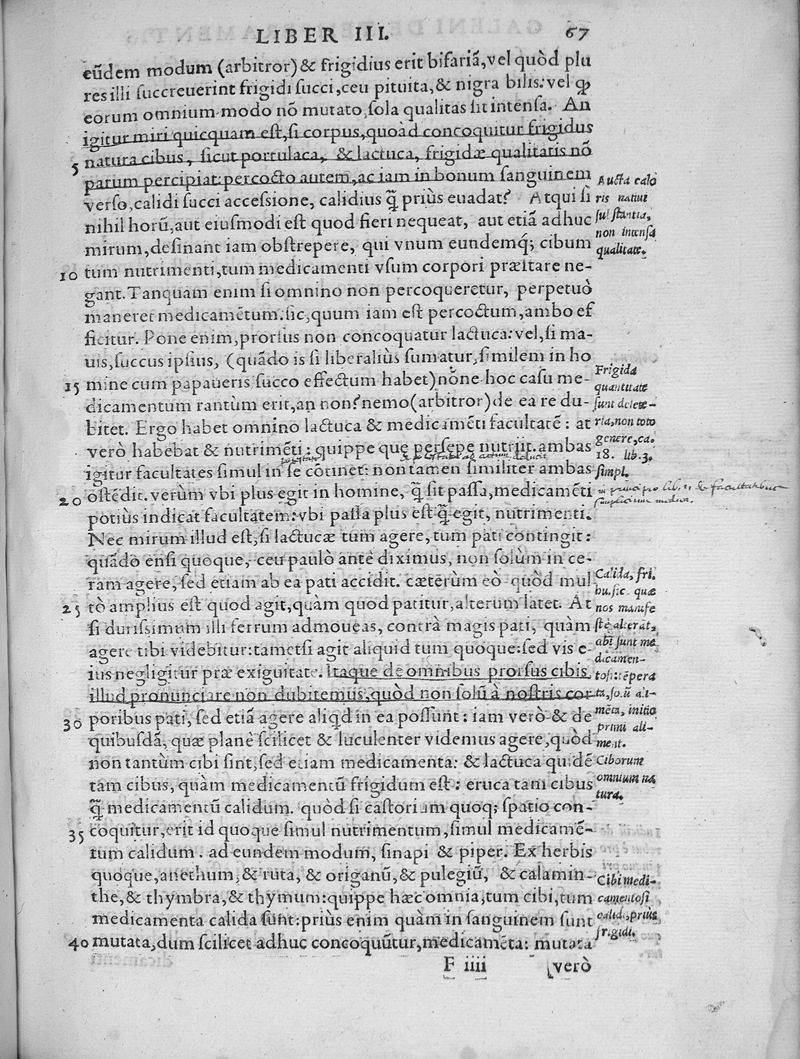 LIBER III. 67
eūdem modum (arbitror) & frigidius erit bifariā, vel quòd plu
res illi succreuerint frigidi succi, ceu pituita, & nigra bilis: vel ꝙ
eorum omnium modo nō mutato, sola qualitas sit intensa. An
igitur miri quicquam est, si corpus, quoàd concoquitur frigidus
5 natura cibus, sicut portulaca, & lactuca, frigidæ qualitatis nō
parum percipiat: percocto autem, ac iam in bonum sanguinem
verso, calidi succi accessione, calidius q̃ priùs euadat? Atqui si
nihil horū, aut eiusmodi est quod fieri nequeat, aut etiā adhuc
mirum, desinant iam obstrepere, qui vnum eundemq; cibum
10 tum nutrimenti, tum medicamenti vsum corpori præstare ne-
gant. Tanquam enim si omnino non percoqueretur, perpetuò
maneret medicamētum. sic, quum iam est percoctum, ambo ef
ficitur. Pone enim, prorsus non concoquatur lactuca: vel, si ma-
uis, succus ipsius, (quādo is si liberaliùs sumatur, similem in ho
15 mine cum papaueris succo effectum habet) nōne hoc casu me-
dicamentum tantùm erit, an non? nemo (arbitror) de ea re du-
bitet. Ergo habet omnino lactuca & medicamēti facultatē: at
verò habebat & nutrimēti: quippe que persepe nutriit. ambas
igitur facultates simul in se cōtinet: non tamen similiter ambas
20 ostēdit. verùm vbi plus egit in homine, q̃ sit passa, medicamēti
potiùs indicat facultatem: vbi passa plus est q̃ egit, nutrimenti.
Nec mirum illud est, si lactucæ tum agere, tum pati contingit:
quādo ensi quoque, ceu paulò antè diximus, non solùm in ce-
ram agere, sed etiam ab ea pati accidit. cæterùm eò quòd mul
25 tò amplius est quod agit, quàm quod patitur, alterum latet. At
si durissimum illi ferrum admoueas, contrà magis pati, quàm
agere tibi videbitur: tametsi agit aliquid tum quoque: sed vis e-
ius negligitur præ exiguitate. Itaque de omnibus prorsus cibis,
illud pronunciare non dubitemus, quòd non solū à nostris cor-
30 poribus pati, sed etiā agere aliqd in ea possunt: iam verò & de
quibusdā, quæ planè scilicet & luculenter videmus agere, quòd
non tantùm cibi sint, sed etiam medicamenta: & lactuca quidē
tam cibus, quàm medicamentū frigidum est: eruca tam cibus
q̃ medicamentū calidum. quòd si castorium quoq; spatio con-
35 coquitur, erit id quoque simul nutrimentum, simul medicamē-
tum calidum. ad eundem modum, sinapi & piper. Ex herbis
quoque, anethum, & ruta, & origanū, & pulegiū, & calamin-
the, & thymbra, & thymum: quippe hæc omnia, tum cibi, tum
medicamenta calida sunt: priùs enim quàm in sanguinem sunt
40 mutata, dum scilicet adhuc concoquūtur, medicamēta: mutata
F iiii verò
Aucta calo
ris natiui
substantia,
non intensa
qualitate.
Frigida
quantitate
sunt delete-
ria, non toto
genere, ca.
18. lib. 3.
simpl.
Calida, fri.
hu. sic. quæ
nos manife
stè alterāt,
abī sunt me
dicamen-
tosi: tēpera
ta, so. ū ali-
mēta, initio
primi ali-
ment.
Ciborum
omnium na
tura.
Cibi medi-
camentosi
calid., priùs
frigidi.